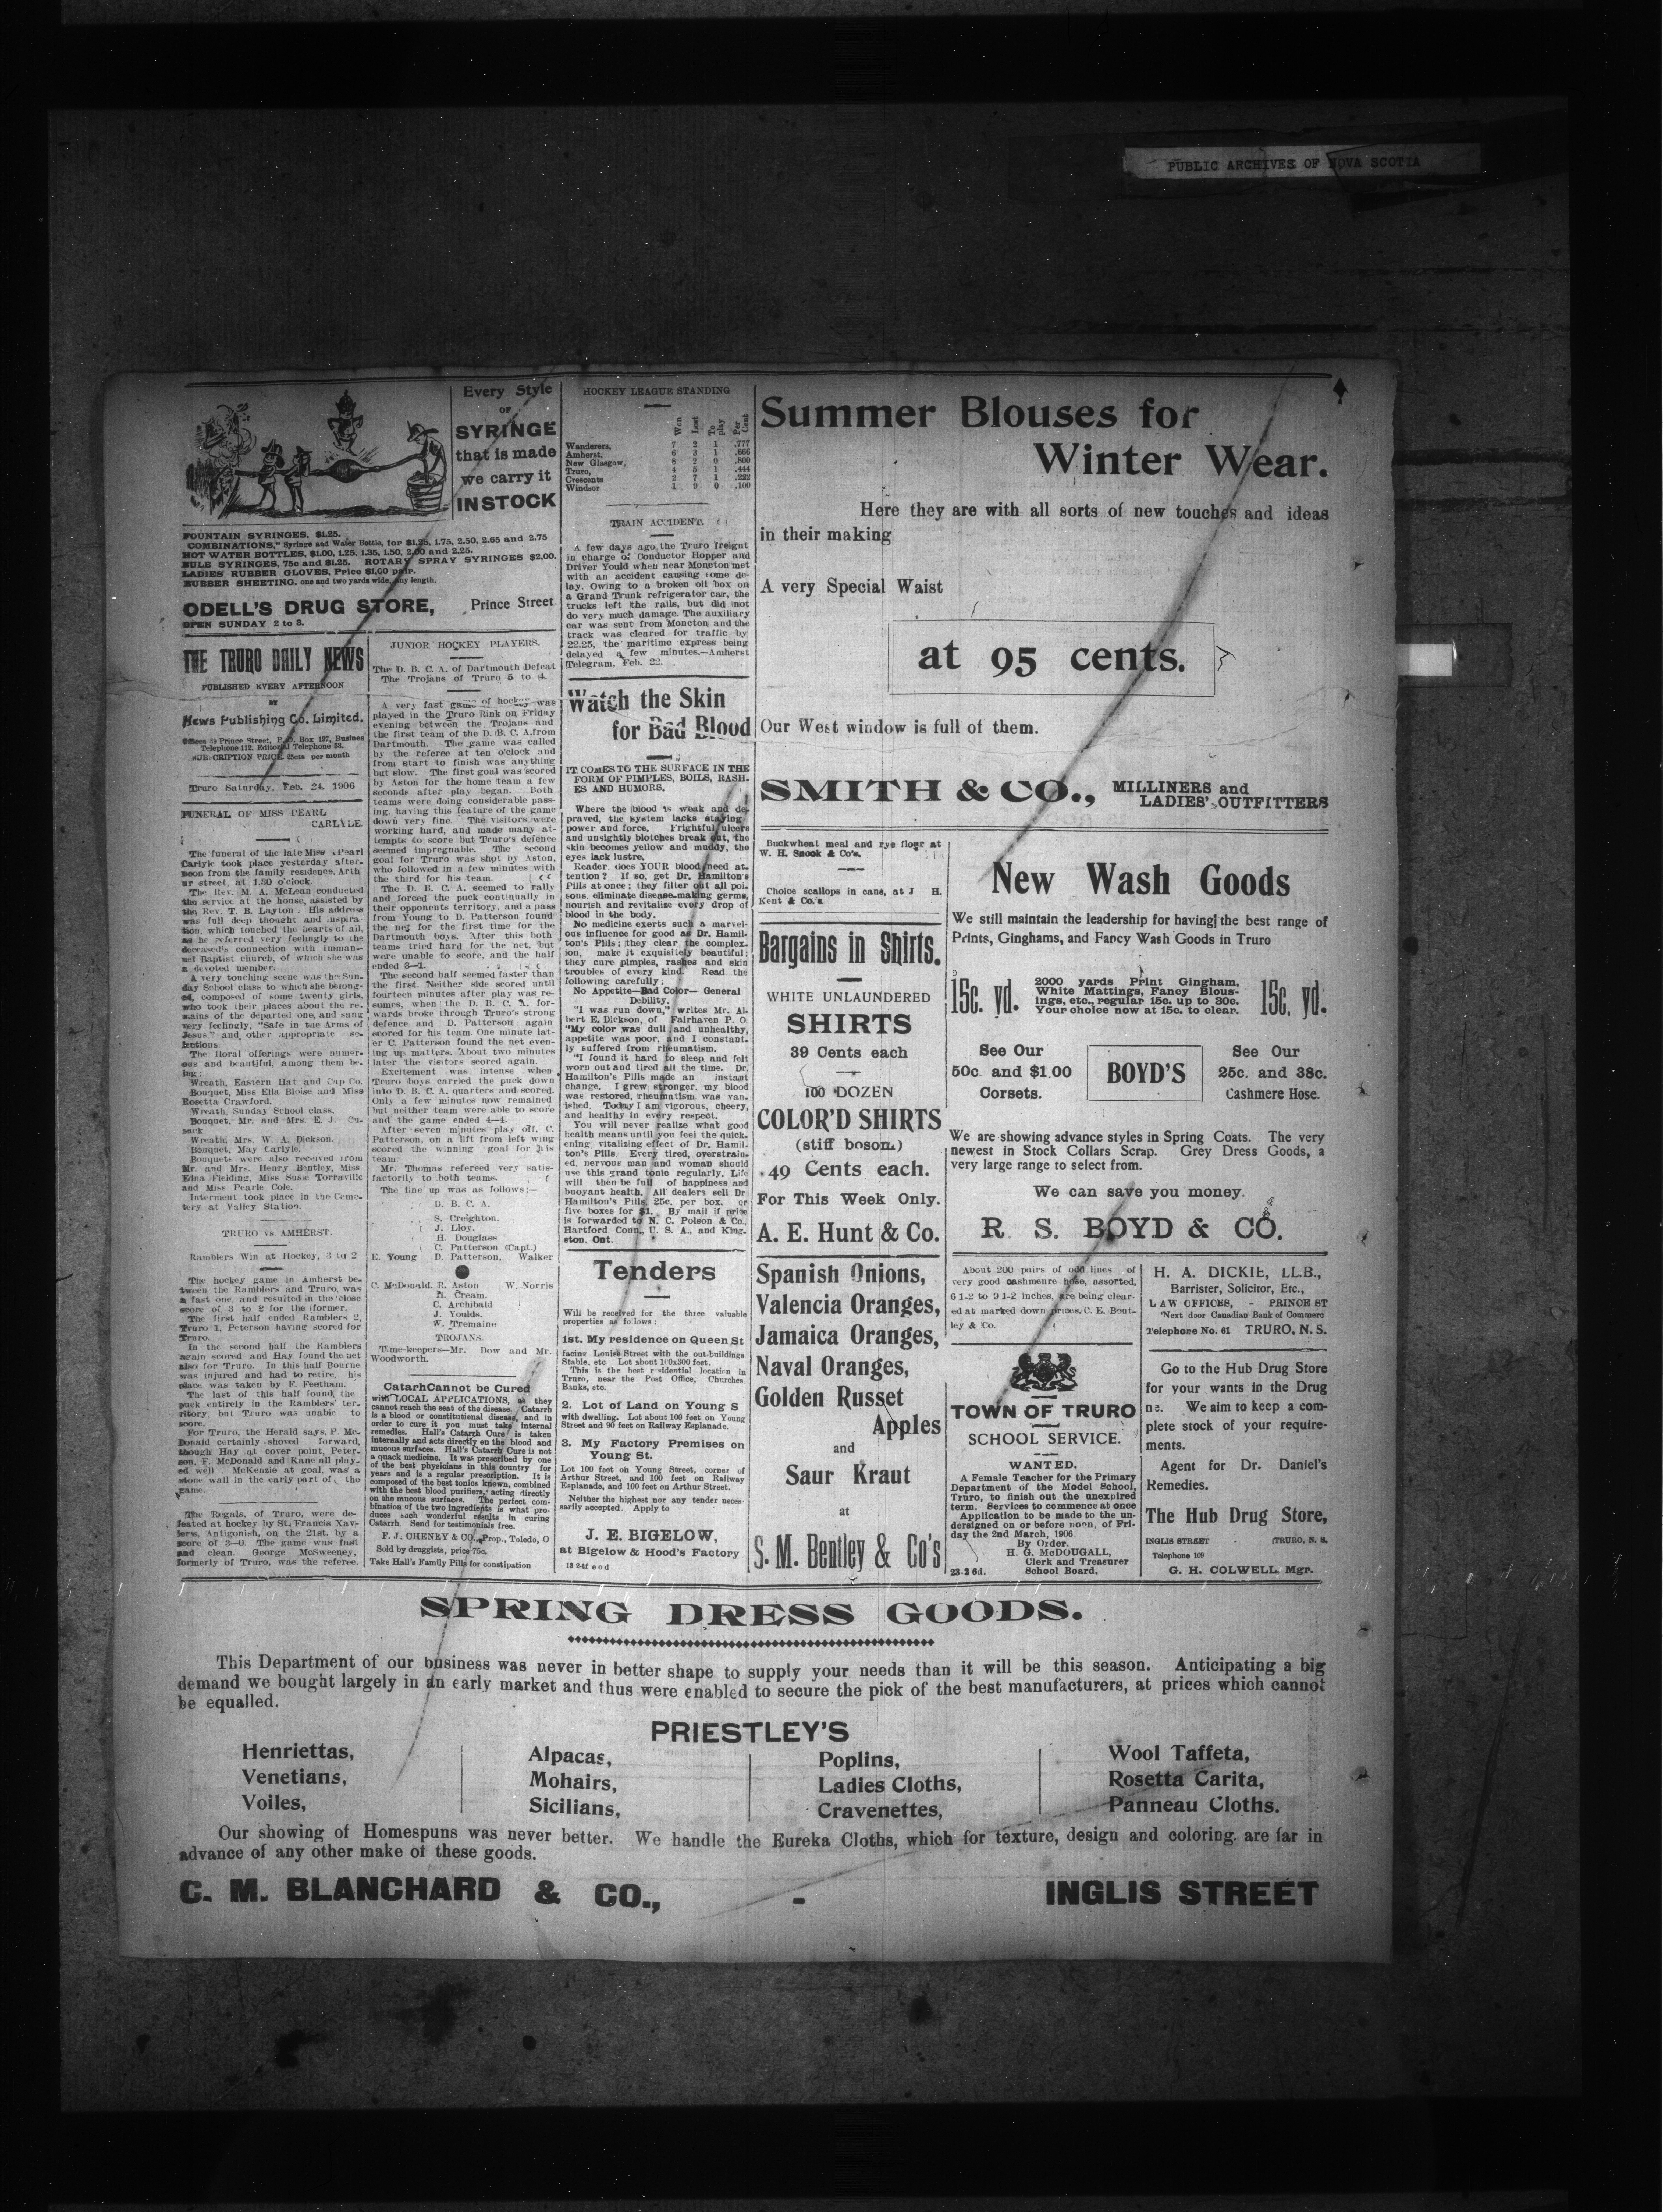 PUBLIC ARCHIVES OF NOVA SCOTIA
Every Style
OF
SYRINGE
that is made
we carry it
IN STOCK
FOUNTAIN SYRINGES, $1.25.
COMBINATIONS," Syringe and Water Bottle, for $1.25, 1.75, 2.50, 2.65 and 2.75
HOT WATER BOTTLES, $1.00, 1.25, 1.35, 1.50, 2.00 and 2.25.
BULB SYRINGES, 75c and $1.25. ROTARY SPRAY SYRINGES $2.00.
LADIES RUBBER GLOVES, Price $1.60 pair.
RUBBER SHEETING, one and two yards wide, any length.
ODELL'S DRUG STORE, Prince Street
OPEN SUNDAY 2 to 3.
THE TRURO DAILY NEWS
PUBLISHED EVERY AFTERNOON
BY
News Publishing Co. Limited.
Offices 39 Prince Street, P.O. Box 127, Busines
Telephone 112. Editorial Telephone 58.
SUBSCRIPTION PRICE. 25cts per month
Truro Saturday, Feb. 24, 1906
FUNERAL OF MISS PEARL
CARLYLE.
The funeral of the late Miss Pearl
Carlyle took place yesterday after-
noon from the family residence, Arth
ur street, at 1.30 o'clock.
The Rev. M. A. McLean conducted
the service at the house, assisted by
the Rev. T. B. Layton. His address
was full deep thought and inspira-
tion, which touched the hearts of all,
as he referred very feelingly to the
deceased's connection with Imman-
uel Baptist church, of which she was
a devoted member.
A very touching scene was the Sun-
day School class to which she belong-
ed, composed of some twenty girls,
who took their places about the re-
mains of the departed one, and sang
very feelingly, "Safe in the Arms of
Jesus" and other appropriate se-
lections.
The floral offerings were numer-
ous and beautiful, among them be-
ing:
Wreath, Eastern Hat and Cap Co.
Bouquet, Miss Ella Blouse and Miss
Rosetta Crawford.
Wreath, Sunday School class.
Bouquet, Mr. and Mrs. E. J. Cu-
sack
Wreath, Mrs. W. A. Dickson.
Bouquet, May Carlyle.
Bouquets were also received from
Mr. and Mrs. Henry Bentley, Miss
Edna Fielding, Miss Susie Torraville
and Miss Pearle Cole.
Interment took place in the Ceme-
tery at Valley Station.
TRURO vs. AMHERST.
Ramblers Win at Hockey, 3 to 2
The hockey game in Amherst be-
tween the Ramblers and Truro, was
a fast one, and resulted in the close
score of 3 to 2 for the former.
The first half ended Ramblers 2,
Truro 1, Peterson having scored for
Truro.
In the second half the Ramblers
again scored and Hay found the net
also for Truro. In this half Bourne
was injured and had to retire, his
place was taken by F. Feetham.
The last of this half found the
puck entirely in the Ramblers' ter-
ritory, but Truro was unable to
score.
For Truro, the Herald says, P. Mc-
Donald certainly shoved forward,
though Hay at cover point, Peter-
son, F. McDonald and Kane all play-
ed well. McKenzie at goal, was a
stone wall in the early part of the
game.
The Regals, of Truro, were de-
feated at hockey by St. Francis Xav-
iers, Antigonish, on the 21st, by a
score of 3—0. The game was fast
and clean. George McSweeney,
formerly of Truro, was the referee.
JUNIOR HOCKEY PLAYERS.
The D. B. C. A. of Dartmouth Defeat
The Trojans of Truro 5 to 4.
A very fast game of hockey was
played in the Truro Rink on Friday
evening between the Trojans and
the first team of the D. B. C. A. from
Dartmouth. The game was called
by the referee at ten o'clock and
from start to finish was anything
but slow. The first goal was scored
by Aston for the home team a few
seconds after play began. Both
teams were doing considerable pass-
ing, having this feature of the game
down very fine. The visitors were
working hard, and made many at-
tempts to score but Truro's defence
seemed impregnable. The second
goal for Truro was shot by Aston,
who followed in a few minutes with
the third for his team.
The D. B. C. A. seemed to rally
and forced the puck continually in
their opponents territory, and a pass
from Young to D. Patterson found
the net for the first time for the
Dartmouth boys. After this both
teams tried hard for the net, but
were unable to score, and the half
ended 3—1.
The second half seemed faster than
the first. Neither side scored until
fourteen minutes after play was re-
sumes, when the D. B. C. A. for-
wards broke through Truro's strong
defence and D. Patterson again
scored for his team. One minute lat-
er C. Patterson found the net even-
ing up matters. About two minutes
later the visitors scored again.
Excitement was intense when
Truro boys carried the puck down
into D. B. C. A. quarters and scored.
Only a few minutes now remained
but neither team were able to score
and the game ended 4—4.
After seven minutes play off, C.
Patterson, on a lift from left wing
scored the winning goal for his
team.
Mr. Thomas refereed very satis-
factorily to both teams.
The line up was as follows:—
D. B. C. A.
S. Creighton.
J. Lloy.
H. Douglass
C. Patterson (Capt.)
E. Young D. Patterson, Walker
C. McDonald. R. Aston W. Norris
N. Cream.
C. Archibald
J. Youlds.
W. Tremaine
TROJANS.
Time-keepers—Mr. Dow and Mr.
Woodworth.
CatarhCannot be Cured
with LOCAL APPLICATIONS, as they
cannot reach the seat of the disease. Catarrh
is a blood or constitutional disease, and in
order to cure it you must take internal
remedies. Hall's Catarrh Cure is taken
internally and acts directly on the blood and
mucous surfaces. Hall's Catarrh Cure is not
a quack medicine. It was prescribed by one
of the best physicians in this country for
years and is a regular prescription. It is
composed of the best tonics known, combined
with the best blood purifiers, acting directly
on the mucous surfaces. The perfect com-
bination of the two ingredients is what pro-
duces such wonderful results in curing
Catarrh. Send for testimonials free.
F. J. CHENEY & CO., Prop., Toledo, O
Sold by druggists, price 75c.
Take Hall's Family Pills for constipation
HOCKEY LEAGUE STANDING
Won Lost To play Per Cent
Wanderers, 7 2 1 .777
Amherst, 6 3 1 .666
New Glasgow, 8 2 0 .800
Truro, 4 5 1 .444
Crescents 2 7 1 .222
Windsor 1 9 0 .100
TRAIN ACCIDENT.
A few days ago the Truro freignt
in charge of Conductor Hopper and
Driver Yould when near Moncton met
with an accident causing some de-
lay. Owing to a broken oil box on
a Grand Trunk refrigerator car, the
trucks left the rails, but did not
do very much damage. The auxiliary
car was sent from Moncton and the
track was cleared for traffic by
22.25, the maritime express being
delayed a few minutes.—Amherst
Telegram, Feb. 22.
Watch the Skin
for Bad Blood
IT COMES TO THE SURFACE IN THE
FORM OF PIMPLES, BOILS, RASH-
ES AND HUMORS.
Where the blood is weak and de-
praved, the system lacks staying
power and force. Frightful ulcers
and unsightly blotches break out, the
skin becomes yellow and muddy, the
eyes lack lustre.
Reader does YOUR blood need at-
tention? If so, get Dr. Hamilton's
Pills at once; they filter out all poi-
sons, eliminate disease-making germs,
nourish and revitalize every drop of
blood in the body.
No medicine exerts such a marvel-
ous influence for good as Dr. Hamil-
ton's Pills; they clear the complex-
ion, make it exquisitely beautiful;
they cure pimples, rashes and skin
troubles of every kind. Read the
following carefully;
No Appetite—Bad Color— General
Debility.
"I was run down," writes Mr. Al-
bert E. Dickson, of Fairhaven P. O.
"My color was dull and unhealthy,
appetite was poor, and I constant-
ly suffered from rheumatism.
"I found it hard to sleep and felt
worn out and tired all the time. Dr.
Hamilton's Pills made an instant
change. I grew stronger, my blood
was restored, rheumatism was van-
ished. Today I am vigorous, cheery,
and healthy in every respect.
You will never realize what good
health means until you feel the quick-
ening vitalizing effect of Dr. Hamil-
ton's Pills. Every tired, overstrain-
ed, nervous man and woman should
use this grand tonic regularly. Life
will then be full of happiness and
buoyant health. All dealers sell Dr
Hamilton's Pills, 25c. per box, or
five boxes for $1. By mail if price
is forwarded to N. C. Polson & Co.,
Hartford, Conn., U. S. A., and King-
ston, Ont.
Tenders
Will be received for the three valuable
properties as follows:
1st. My residence on Queen St
facing Louise Street with the out-buildings
Stable, etc. Lot about 100x300 feet.
This is the best residential location in
Truro, near the Post Office, Churches
Banks, etc.
2. Lot of Land on Young S
with dwelling. Lot about 100 feet on Young
Street and 90 feet on Railway Esplanade.
3. My Factory Premises on
Young St.
Lot 100 feet on Young Street, corner of
Arthur Street, and 100 feet on Railway
Esplanade, and 100 feet on Arthur Street.
Neither the highest nor any tender neces-
sarily accepted. Apply to
J. E. BIGELOW,
at Bigelow & Hood's Factory
Summer Blouses for
Winter Wear.
Here they are with all sorts of new touches and ideas
in their making
A very Special Waist
at 95 cents.
Our West window is full of them.
SMITH & CO., MILLINERS and
LADIES' OUTFITTERS
Buckwheat meal and rye flour at
W. H. Snook & Co's.
Choice scallops in cans, at J H.
Kent & Co.'s.
Bargains in Shirts.
WHITE UNLAUNDERED
SHIRTS
39 Cents each
100 DOZEN
COLOR'D SHIRTS
(stiff bosom.)
49 Cents each.
For This Week Only.
A. E. Hunt & Co.
Spanish Onions,
Valencia Oranges,
Jamaica Oranges,
Naval Oranges,
Golden Russet
Apples
and
Saur Kraut
at
S. M. Bentley & Co's
New Wash Goods
We still maintain the leadership for having the best range of
Prints, Ginghams, and Fancy Wash Goods in Truro
15c. yd.
2000 yards Print Gingham,
White Mattings, Fancy Blous-
ings, etc., regular 15c. up to 30c.
Your choice now at 15c. to clear.
15c. yd.
See Our
50c. and $1.00
Corsets.
BOYD'S
See Our
25c. and 38c.
Cashmere Hose.
We are showing advance styles in Spring Coats. The very
newest in Stock Collars Scrap. Grey Dress Goods, a
very large range to select from.
We can save you money.
R. S. BOYD & CO.
About 200 pairs of odd lines of
very good cashmenre hose, assorted,
6 1-2 to 9 1-2 inches, are being clear-
ed at marked down prices. C. E. Bent-
ley & Co.
TOWN OF TRURO
SCHOOL SERVICE.
WANTED.
A Female Teacher for the Primary
Department of the Model School,
Truro, to finish out the unexpired
term. Services to commence at once
Application to be made to the un-
dersigned on or before noon, of Fri-
day the 2nd March, 1906.
By Order.
H. G. McDOUGALL,
Clerk and Treasurer
School Board.
23-2 6d.
H. A. DICKIE, LL.B.,
Barrister, Solicitor, Etc.,
LAW OFFICES, - PRINCE ST
Next door Canadian Bank of Commerc
Telephone No. 61 TRURO, N. S.
Go to the Hub Drug Store
for your wants in the Drug
We aim to keep a com-
plete stock of your require-
ments.
Agent for Dr. Daniel's
Remedies.
The Hub Drug Store,
INGLIS STREET TRURO, N. S.
Telephone 109
G. H. COLWELL, Mgr.
SPRING DRESS GOODS.
This Department of our business was never in better shape to supply your needs than it will be this season. Anticipating a big
demand we bought largely in an early market and thus were enabled to secure the pick of the best manufacturers, at prices which cannot
be equalled.
PRIESTLEY'S
Henriettas,
Venetians,
Voiles,
Alpacas,
Mohairs,
Sicilians,
Poplins,
Ladies Cloths,
Cravenettes,
Wool Taffeta,
Rosetta Carita,
Panneau Cloths.
Our showing of Homespuns was never better. We handle the Eureka Cloths, which for texture, design and coloring, are far in
advance of any other make of these goods.
C. M. BLANCHARD & CO., - INGLIS STREET